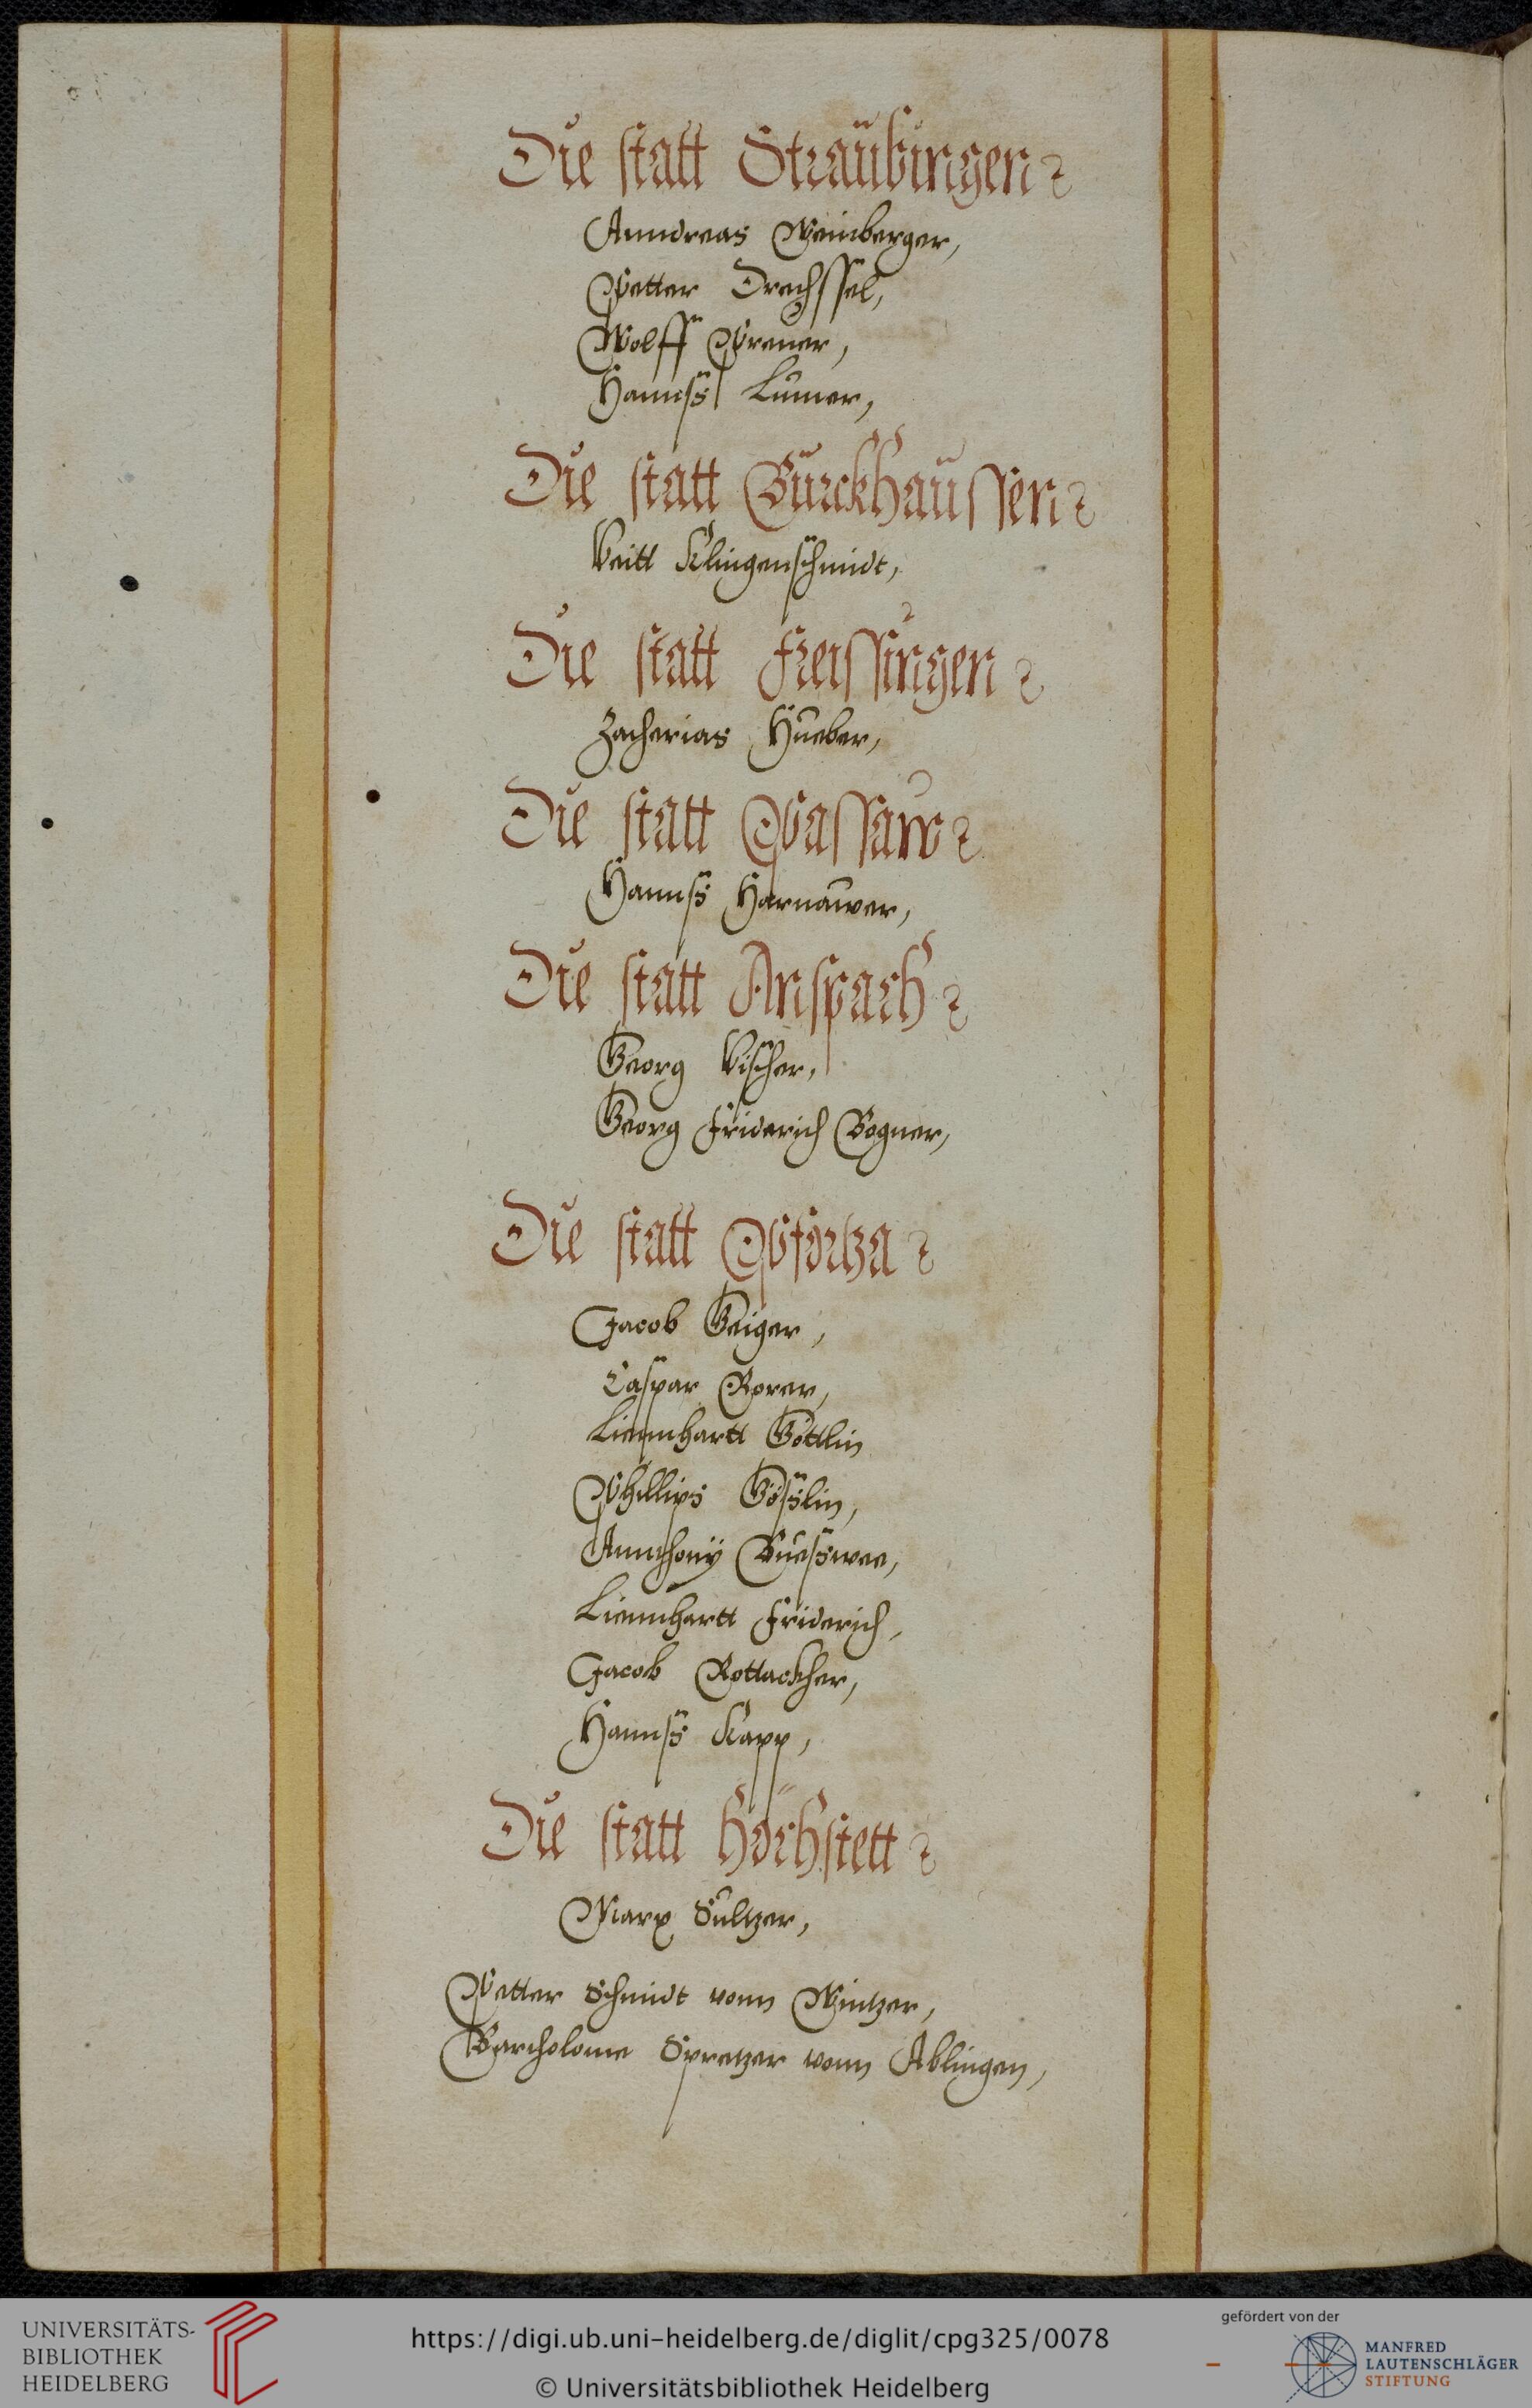 Die statt Straubingen
Anndreas Weinberger,
Petter Drechssel,
Wolff Preuer,
Hannß Lumer,
Die statt Burckhaussen
Veitt Klingenschmidt,
Die statt Freissingen
Zacherias Hueber,
Die statt Passaw
Hannß Harnauwer,
Die statt Anspach
Georg Vischer,
Georg Friderich Bogner,
Die statt Pfortza
Jacob Geiger,
Caspar Rorer,
Liennhartt Göttlin
Phillips Gößlin,
Annthony
Liennhartt Friderich,
Jacob Rottackher,
Hannß Kapp,
Die statt Höchstett
Marx Sultzer,
Petter Schmidt vonn Wintzer,
Bartholome Spretzer vonn Ablingen,
UNIVERSITÄTS-
BIBLIOTHEK
HEIDELBERG
https://digi.ub.uni-heidelberg.de/diglit/cpg325/0078
© Universitätsbibliothek Heidelberg
gefördert von der
MANFRED
LAUTENSCHLÄGER
STIFTUNG